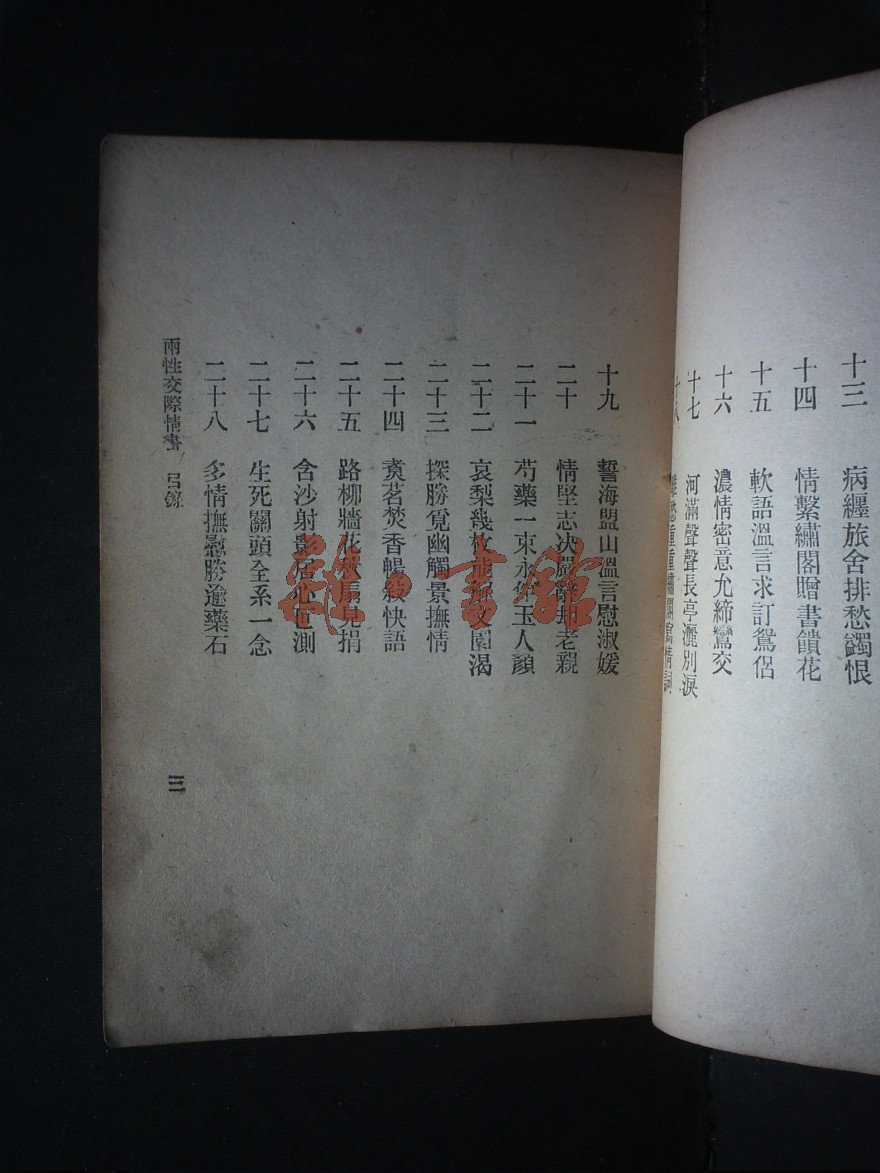 十三 病纏旅舍排愁蠲恨
十四 情繫繡閣贈書饋花
十五 軟語溫言求訂鴛侶
十六 濃情密意允締鸞交
十七 河滿聲聲長亭灑別淚
十八 重重
十九 誓海盟山溫言慰淑媛
二十 情堅志决嚴辭却老親
二十一 芍藥一束永 玉人顏
二十二 哀梨幾枚能 文園渴
二十三 探勝覓幽觸景撫情
二十四 煑茗焚香暢敍快語
二十五 路柳牆花秋扇見捐
二十六 含沙射影居心叵測
二十七 生死關頭全系一念
二十八 多情撫慰勝逾藥石
兩性交際情書 目錄
三
雜·書館